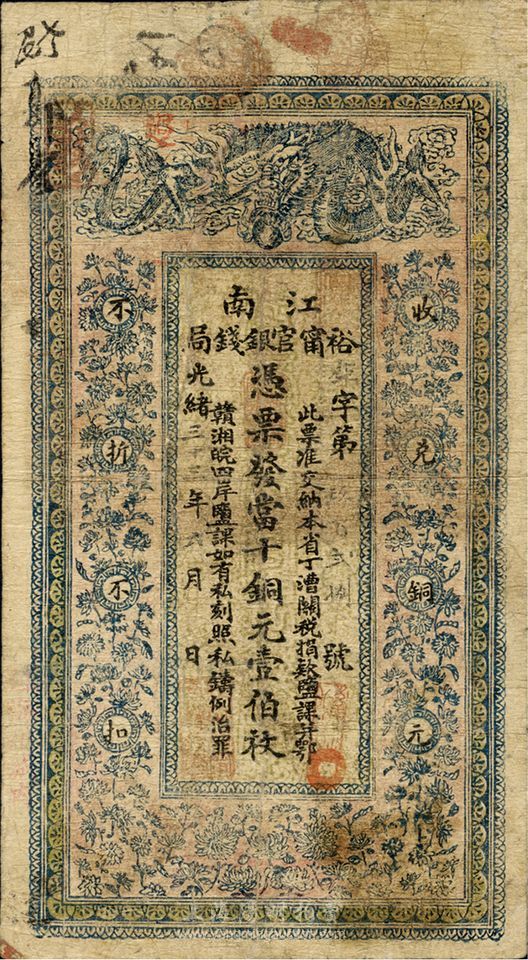 江南
裕甯官銀錢局
字第 號
此票准交納本省丁漕關稅捐款鹽課并鄂
憑票發當十銅元壹伯枚
贛湘皖四岸鹽課如有私刻照私鑄例治罪
光緒三十三年 月 日
收兌銅元
不折不扣